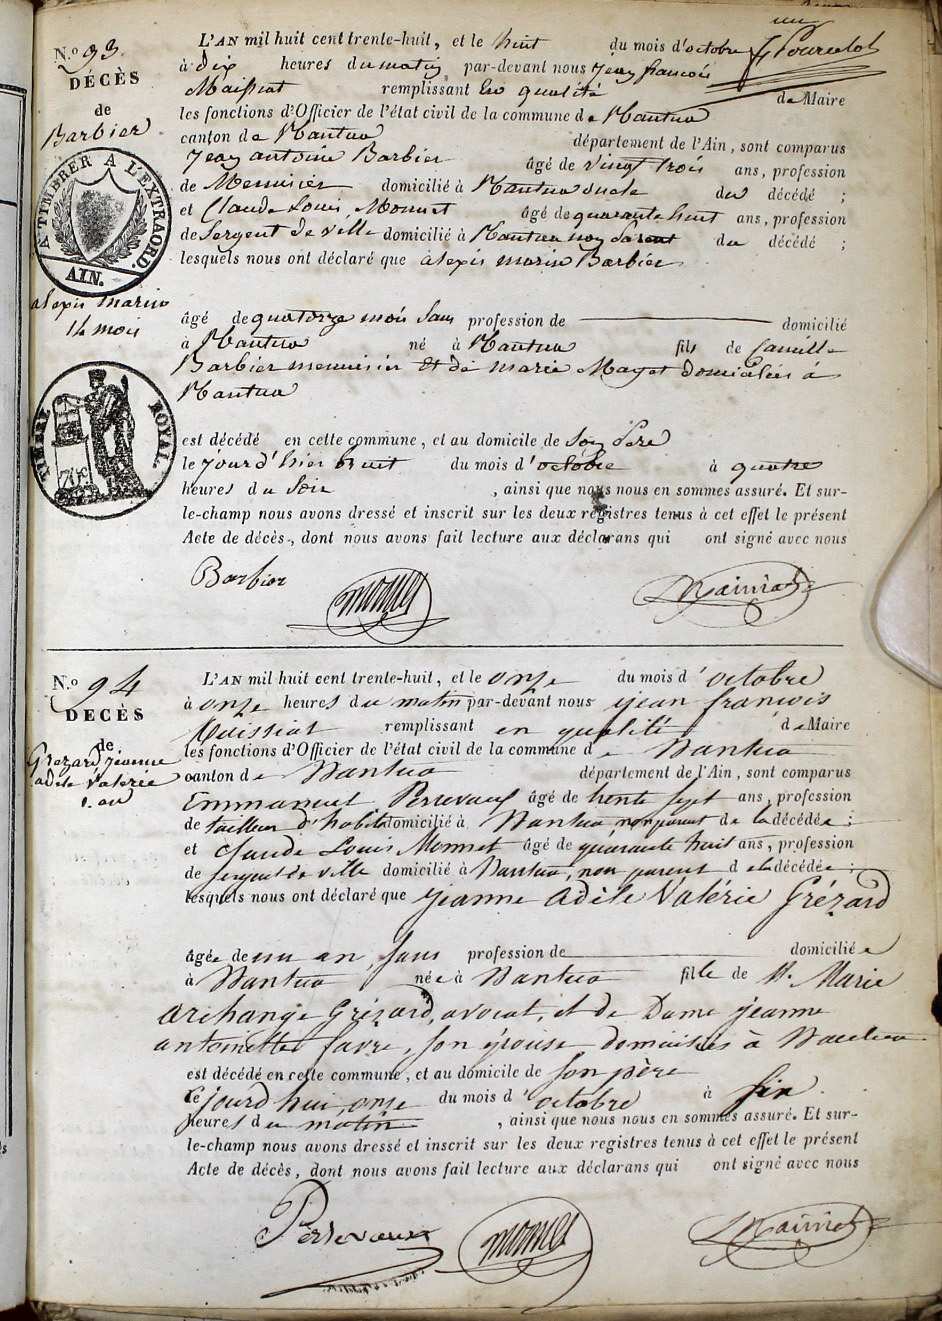 N.º 93
DÉCÈS
de
Barbier
A TIMBRER A L'EXTRAORD.
AIN.
alexis marin
14 mois
TIMBRE ROYAL
L'AN mil huit cent trente-huit, et le huit du mois d'octobre
F. Pourcelot
à dix heures du matin par-devant nous Jean françois
Maissiat remplissant en qualité de Maire
les fonctions d'Officier de l'état civil de la commune de Nantua
canton de Nantua département de l'Ain, sont comparus
Jean antoine Barbier âgé de vingt trois ans, profession
de Menuisier domicilié à Nantua oncle du décédé ;
et Claude Louis Monnet âgé de quarante huit ans, profession
de Sergent de ville domicilié à Nantua non parent du décédé ;
lesquels nous ont déclaré que alexis marin Barbier
âgé de quatorze mois sans profession de domicilié
à Nantua né à Nantua fils de Camille
Barbier menuisier et de marie Maget domiciliés à
Nantua
est décédé en cette commune, et au domicile de son père
le jour d'hier du mois d'octobre à quatre
heures du soir , ainsi que nous nous en sommes assuré. Et sur-
le-champ nous avons dressé et inscrit sur les deux registres tenus à cet effet le présent
Acte de décès, dont nous avons fait lecture aux déclarans qui ont signé avec nous
Barbier monnet Maissiat
N.º 94
DECÈS
de
Grezard jeanne
adèle Valérie
1. an
L'AN mil huit cent trente-huit, et le onze du mois d'octobre
à onze heures du matin par-devant nous jean francois
Maissiat remplissant en qualité de Maire
les fonctions d'Officier de l'état civil de la commune de Nantua
canton de Nantua département de l'Ain, sont comparus
Emmanuel Perrevoux âgé de trente sept ans, profession
de tailleur d'habits domicilié à Nantua non parent de la décédée ;
et Claude Louis Monnet âgé de quarante huit ans, profession
de sergent de ville domicilié à Nantua, non parent de la décédée ;
lesquels nous ont déclaré que jeanne adèle Valérie Grézard
âgée de un an, sans profession de domiciliée
à Nantua née à Nantua fille de M. Marie
archange Grézard, avocat, et de Dame jeanne
antoinette favre, son épouse domiciliés à Nantua
est décédé en cette commune, et au domicile de son père
le jourd'hui onze du mois d'octobre à six
heures du matin , ainsi que nous nous en sommes assuré. Et sur-
le-champ nous avons dressé et inscrit sur les deux registres tenus à cet effet le présent
Acte de décès, dont nous avons fait lecture aux déclarans qui ont signé avec nous
Perrevoux monnet Maissiat